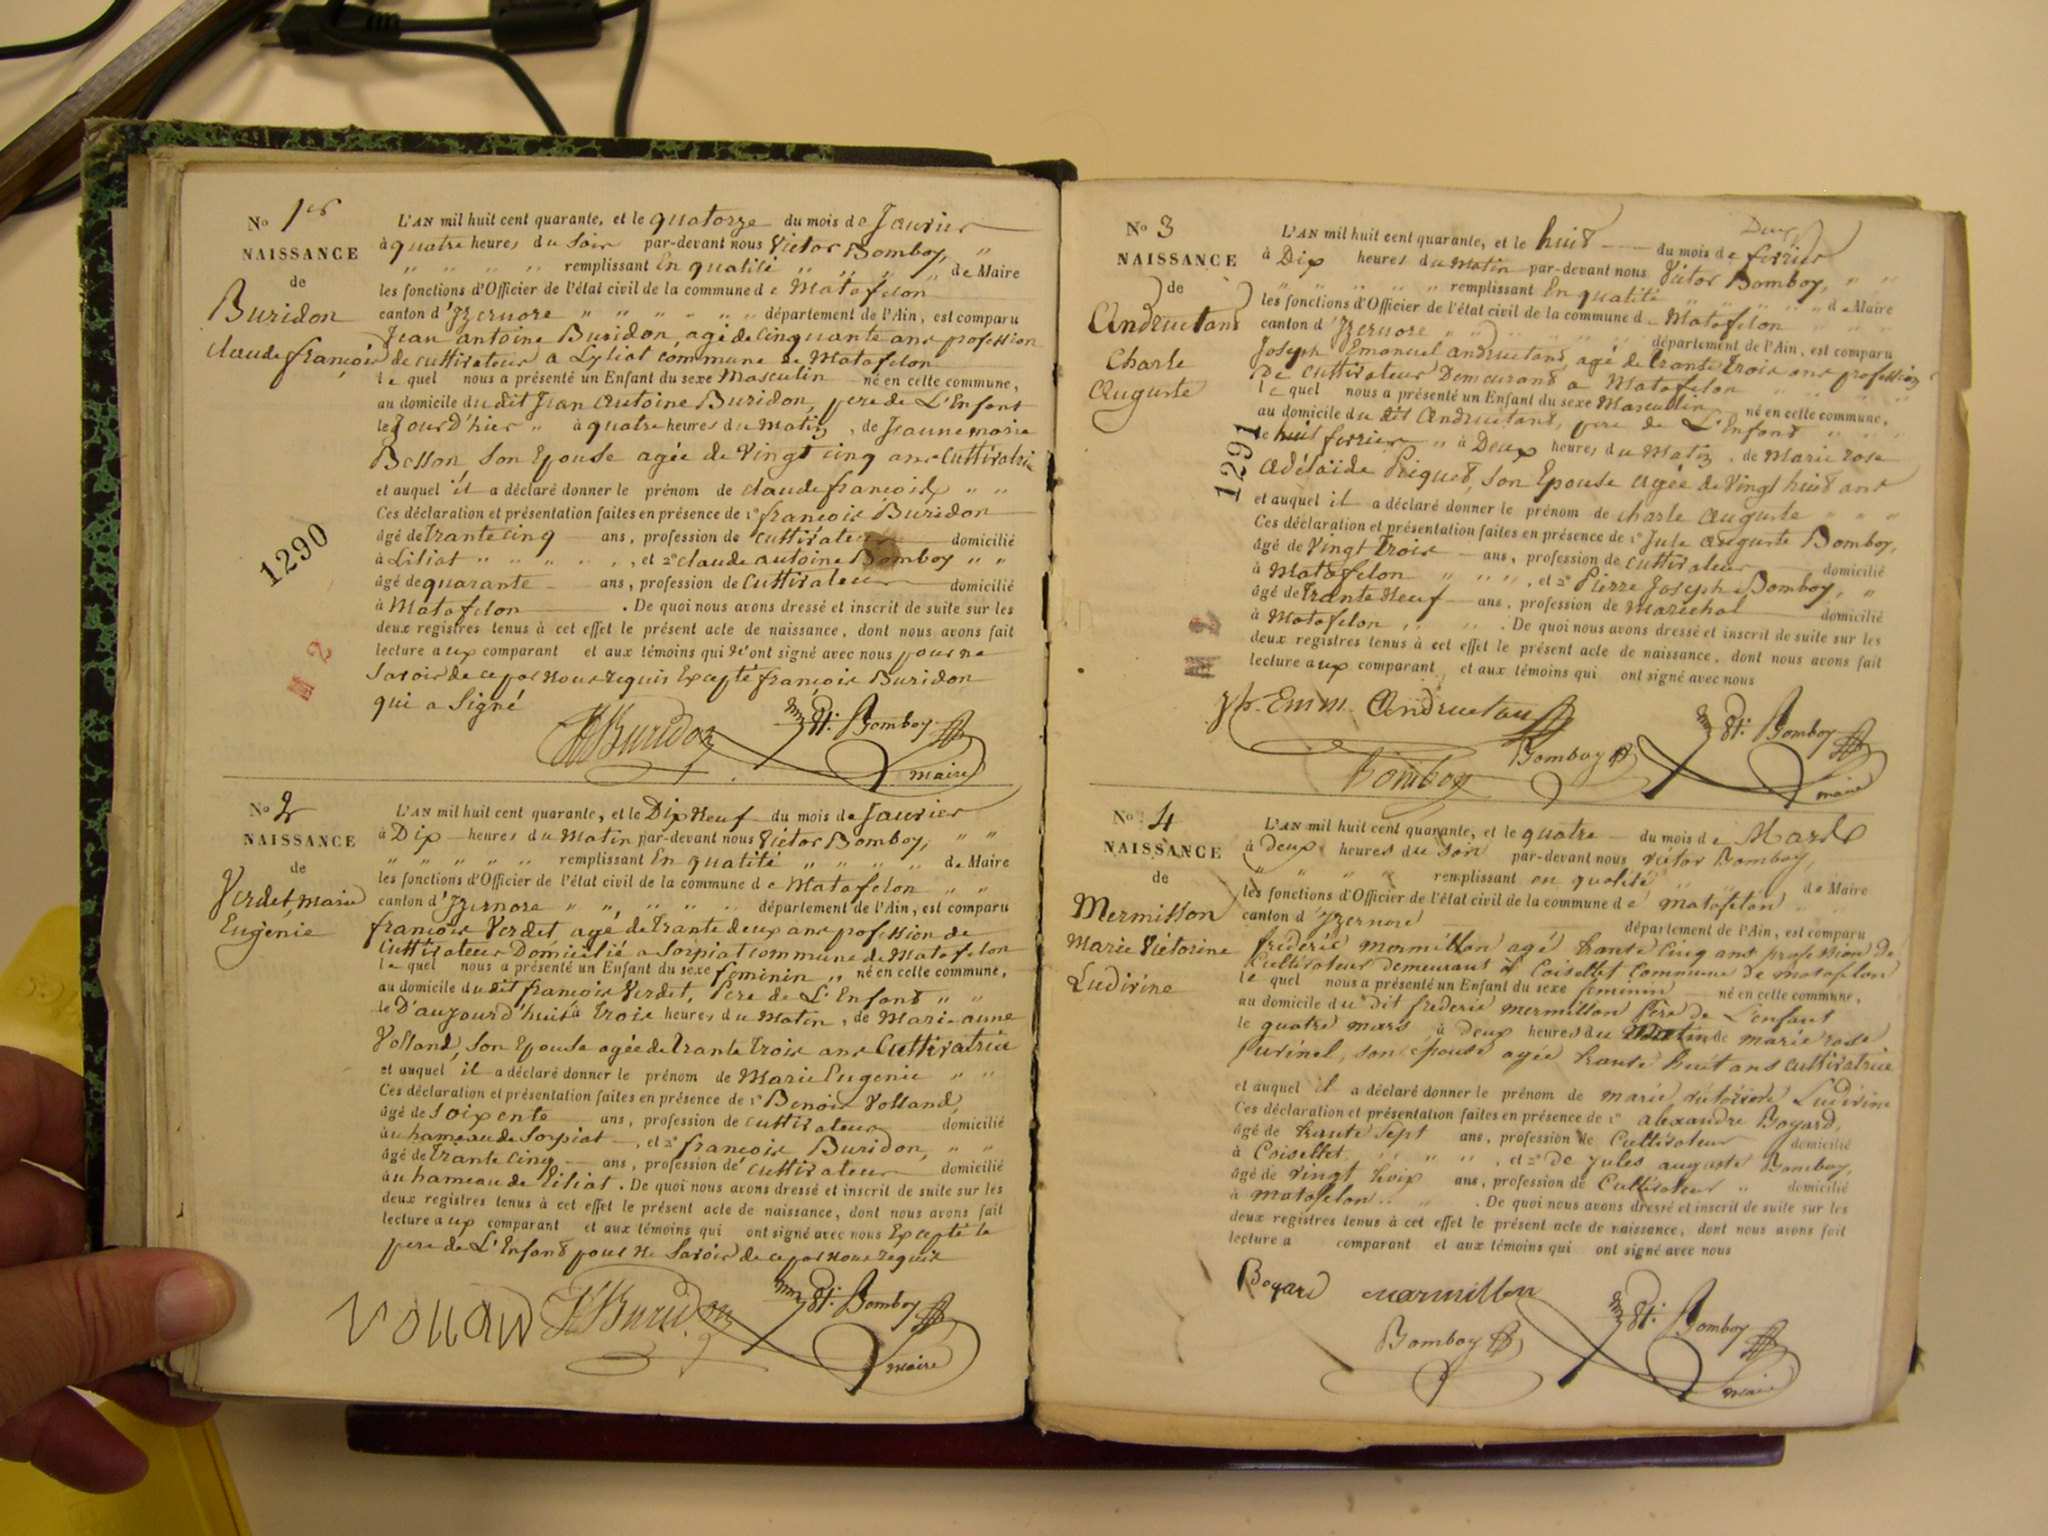 No 1er
NAISSANCE
de
Buridon
claude françois
L'AN mil huit cent quarante, et le quatorze du mois de Janvier
à quatre heures du Soir par-devant nous Victor Bomboy, "
" " " " remplissant En qualité " " " " de Maire
les fonctions d'Officier de l'état civil de la commune de Matafelon
canton d'Yzernore " " " " " " département de l'Ain, est comparu
Jean antoine Buridon, agé de Cinquante ans profession
de cultivateur a Lyliat commune de Matafelon
le quel nous a présenté un Enfant du sexe Masculin né en cette commune,
au domicile du dit Jean Antoine Buridon, pere de L'Enfant
le Jour D'hier " à quatre heures du Matin, de Jeanne marie
Besson, Son Epouse agée de Vingt cinq ans Cultivatrice
et auquel il a déclaré donner le prénom de claude françois " "
Ces déclaration et présentation faites en présence de 1° françois Buridon
âgé de trante cinq ans, profession de cultivateur domicilié
à Liliat " " " " " , et 2° claude antoine Bomboy " "
âgé de quarante ans, profession de Cultivateur domicilié
à Matafelon . De quoi nous avons dressé et inscrit de suite sur les
deux registres tenus à cet effet le présent acte de naissance, dont nous avons fait
lecture aux comparant et aux témoins qui n'ont signé avec nous pour ne
Savoir de ce par nous requis Excepté françois Buridon
qui a Signé
Buridon Bomboy
maire
1290
M 2
No 2
NAISSANCE
de
Verdet, marie
Eugénie
L'AN mil huit cent quarante, et le Dix Neuf du mois de Janvier
à Dix heures du Matin par-devant nous Victor Bomboy, " "
" " " " " remplissant En qualité " " " " de Maire
les fonctions d'Officier de l'état civil de la commune de Matafelon " "
canton d'Yzernore " " , " " " département de l'Ain, est comparu
françois Verdet, agé de trante deux ans profession de
Cultivateur Domicilié a Sorpiat commune de Matafelon
le quel nous a présenté un Enfant du sexe feminin " né en cette commune,
au domicile du dit françois Verdet, Pere de L'Enfant " "
le D'aujourd'huit à trois heures du Matin, de Marie anne
Volland, Son Epouse agée de trante trois ans Cultivatrice
et auquel il a déclaré donner le prénom de Marie Eugenie " "
Ces déclaration et présentation faites en présence de 1° Benoit Volland,
âgé de Soixente ans, profession de cultivateur domicilié
à u hameau de Sorpiat , et 2° françois Buridon, " "
âgé de trante cinq ans, profession de cultivateur domicilié
à u hameau de Liliat. De quoi nous avons dressé et inscrit de suite sur les
deux registres tenus à cet effet le présent acte de naissance, dont nous avons fait
lecture aux comparant et aux témoins qui ont signé avec nous Excepté le
pere de L'Enfant pour ne Savoir de ce par nous requis
Volland Buridon Bomboy
maire
No 3
NAISSANCE
de
Andruetand
Charle
Auguste
L'AN mil huit cent quarante, et le huit du mois de fevrier
à Dix heures du Matin par-devant nous Victor Bomboy, " "
" " " " " remplissant En qualité " " " de Maire
les fonctions d'Officier de l'état civil de la commune de Matafelon " "
canton d'Yzernore " " " " département de l'Ain, est comparu
Joseph Emanuel andruetand, agé de trante trois ans profession
De cultivateur Demeurant a Matafelon " " " "
le quel nous a présenté un Enfant du sexe Masculin né en cette commune,
au domicile du dit Andruetand, pere de L'Enfant " " "
le huit fevrier " à Deux heures du Matin, de Marie rose
adélaïde Picquet, Son Epouse agée de Vingt huit ans
et auquel il a déclaré donner le prénom de charle auguste " " "
Ces déclaration et présentation faites en présence de 1° Jule auguste Bomboy,
âgé de Vingt trois ans, profession de cultivateur domicilié
à Matafelon " " " , et 2° Pierre Joseph Bomboy, "
âgé de trante Neuf ans, profession de Maréchal domicilié
à Matafelon , " " . De quoi nous avons dressé et inscrit de suite sur les
deux registres tenus à cet effet le présent acte de naissance, dont nous avons fait
lecture aux comparant, et aux témoins qui ont signé avec nous
Emm. Andruetand Bomboy Bomboy
Bomboy maire
1291
M 2
No 4
NAISSANCE
de
Mermillon
Marie Victorine
Ludivine
L'AN mil huit cent quarante, et le quatre du mois de Mars
à deux heures du soir par-devant nous victor Bomboy,
" " " " remplissant en qualité de Maire
les fonctions d'Officier de l'état civil de la commune de matafelon " "
canton d'yzernore département de l'Ain, est comparu
fréderic mermillon agé trante cinq ans profession de
Cultivateur demeurant a Coisellet Commune de matafelon
le quel nous a présenté un Enfant du sexe feminin né en cette commune,
au domicile du dit frederic mermillon père de L'enfant
le quatre mars à deux heures du Matin de marie rose
, son épouse agée trante huit ans cultivatrice
et auquel il a déclaré donner le prénom de marie victorine Ludivine
Ces déclaration et présentation faites en présence de 1° alexandre Boyard,
âgé de trante sept ans, profession de Cultivateur domicilié
à Coisellet " " " , et 2° de jules auguste Bomboy,
âgé de vingt troix ans, profession de Cultivateur " domicilié
à matafelon . De quoi nous avons dressé et inscrit de suite sur les
deux registres tenus à cet effet le présent acte de naissance, dont nous avons fait
lecture a comparant et aux témoins qui ont signé avec nous
Boyard mermillon Bomboy
Bomboy maire